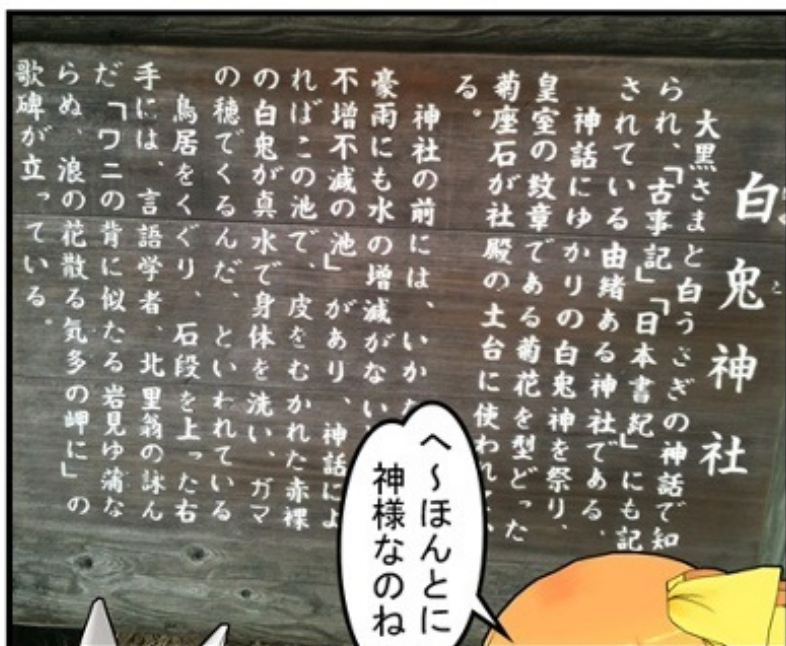 白兎神社
大黒さまと白うさぎの神話で知
られ、「古事記」「日本書紀」にも記
されている由緒ある神社である、
神話にゆかりの白兎神を祭り、
皇室の紋章である菊花を型どった
菊座石が社殿の土台に使われて、
る。
神社の前には、いか
豪雨にも水の増減がない
不増不減の池」があり、神話によ
ればこの池で、皮をむかれた赤裸
の白兎が真水で身体を洗い、ガマ
の穂でくるんだ、といわれている
鳥居をくぐり、石段を上った右
手には、言語学者、北里翁の詠ん
だ「ワニの背に似たる岩見ゆ蒲な
らぬ、浪の花散る気多の岬に」の
歌碑が立っている。
へ～ほんとに
神様なのね